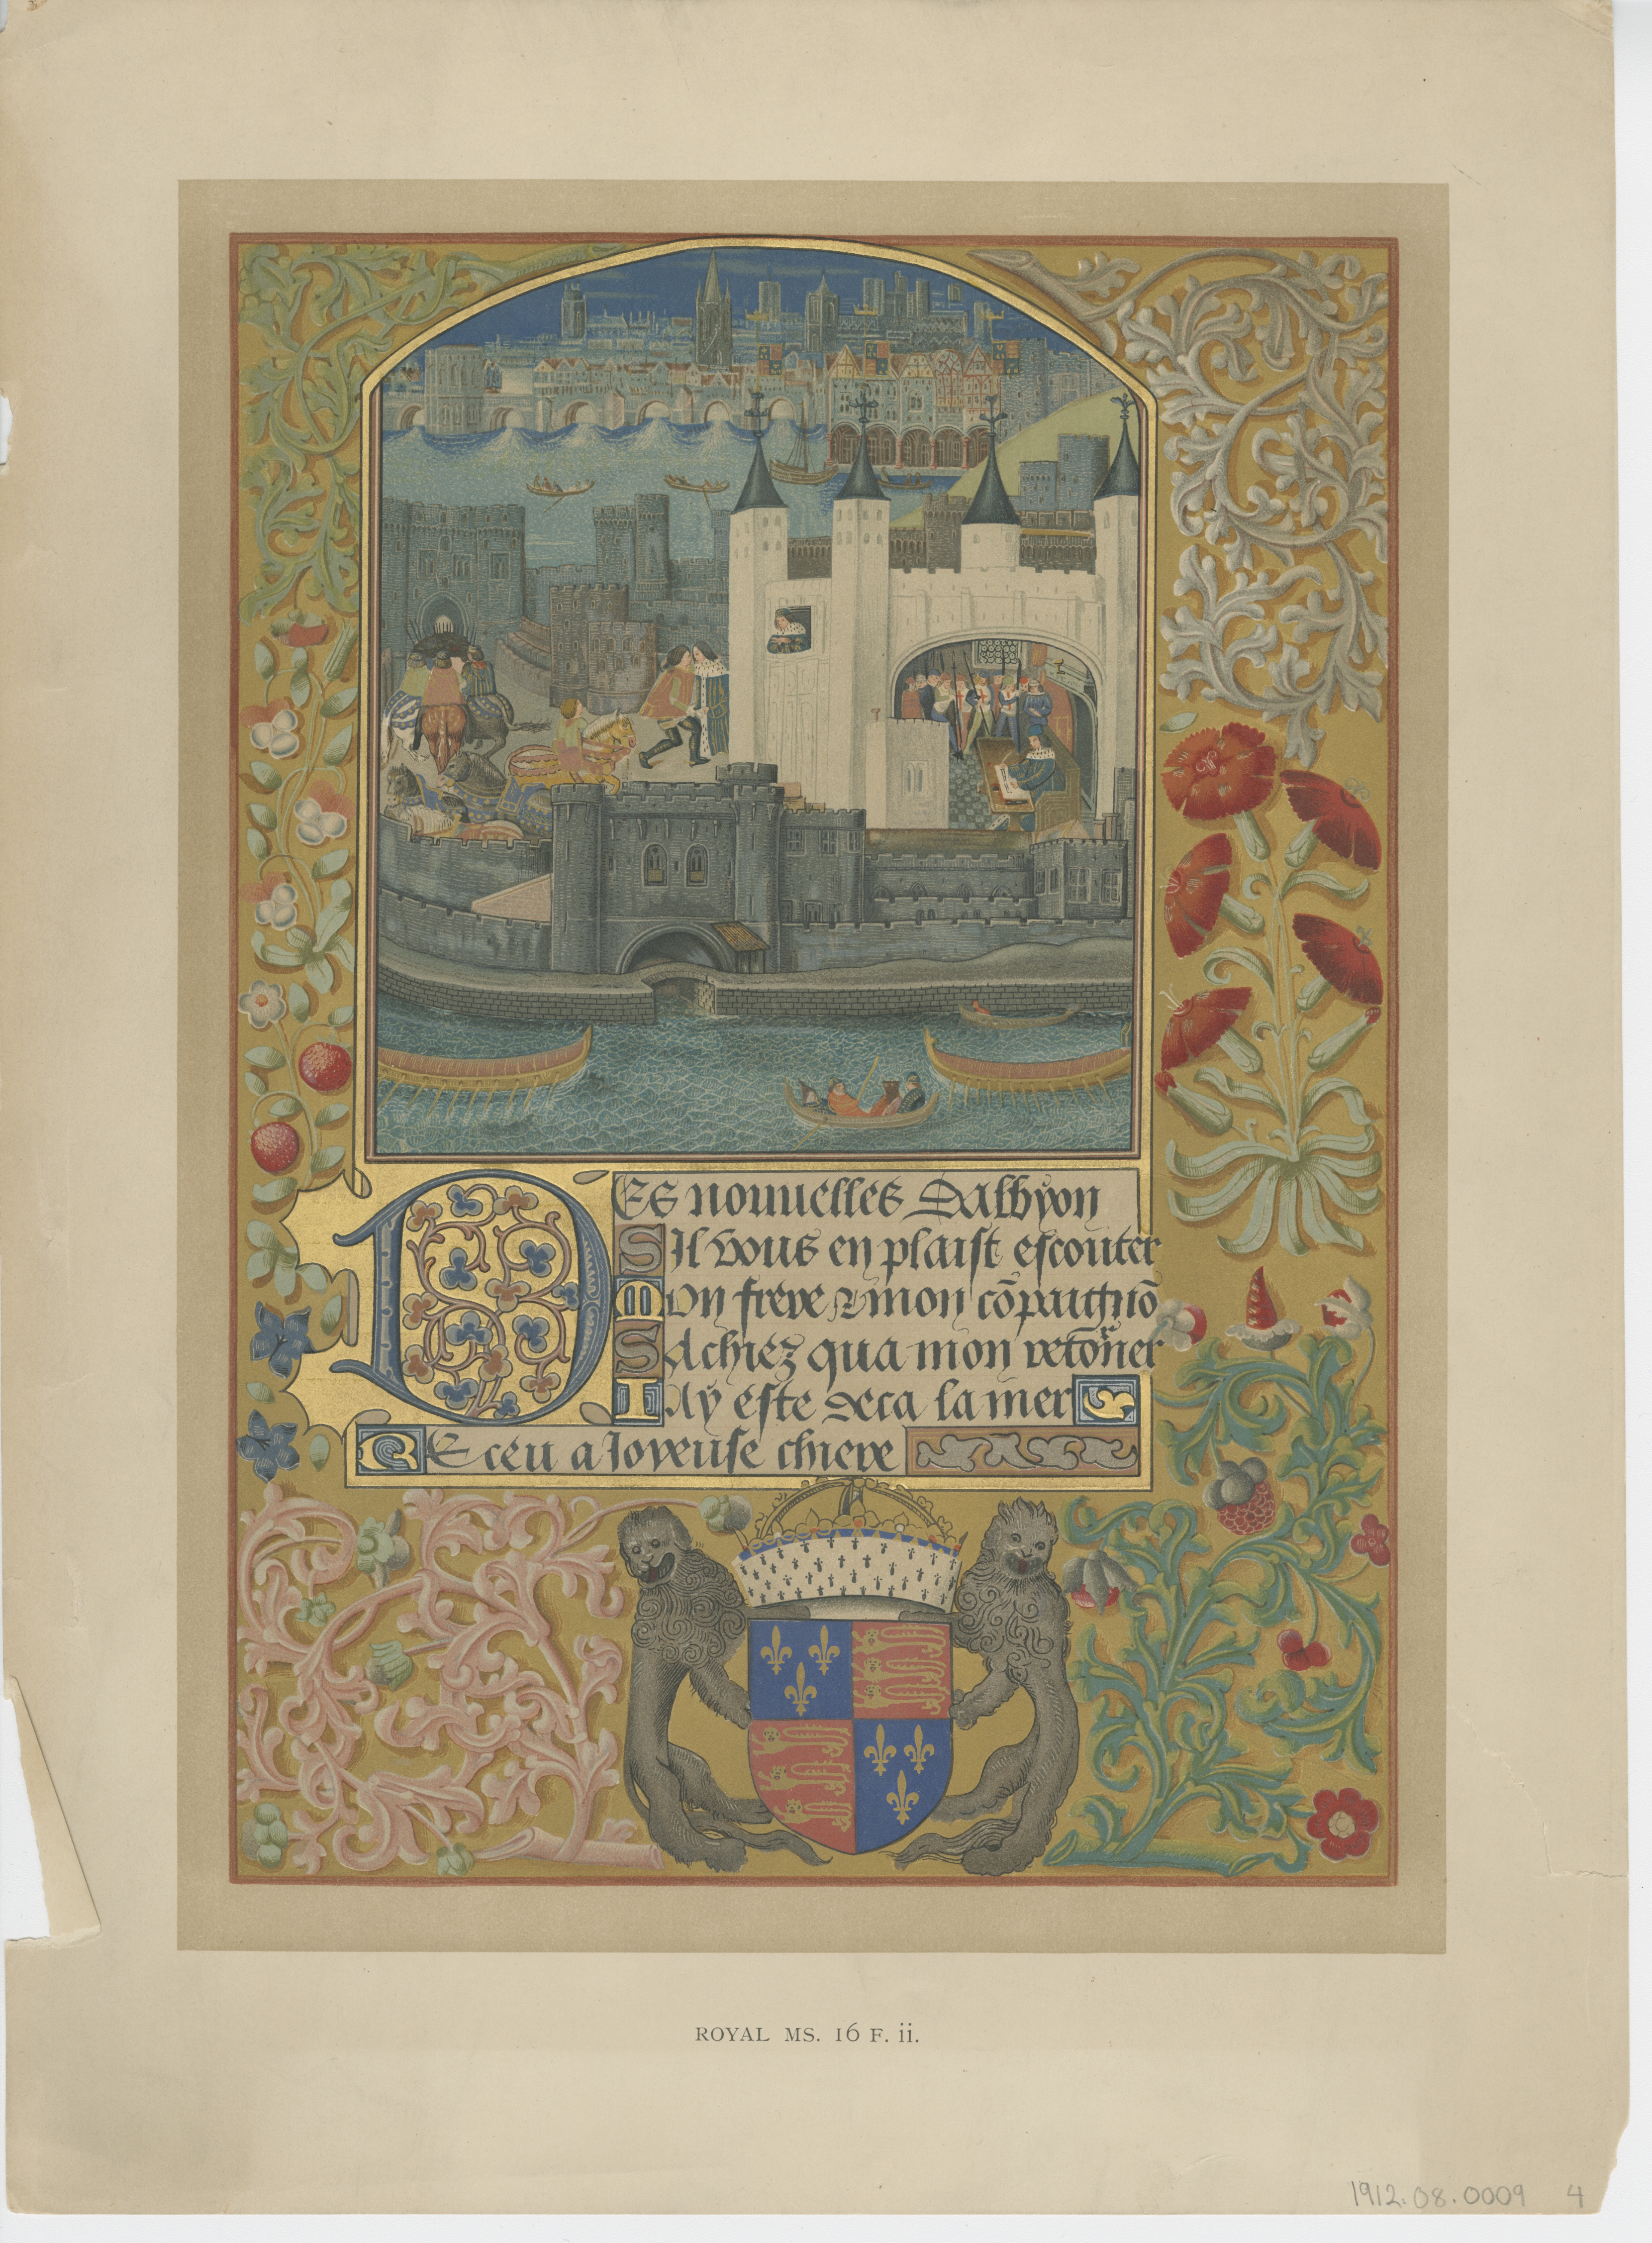 DES nouuelles Dalbyon
SIl vous en plaist escouter
MOn frere & mon cōpaignō
SAchiez qua mon retoũer
IAy este deca la mer
REceu a Joyeuse chiere
ROYAL MS. 16 F. ii.
1912.08.0009 4